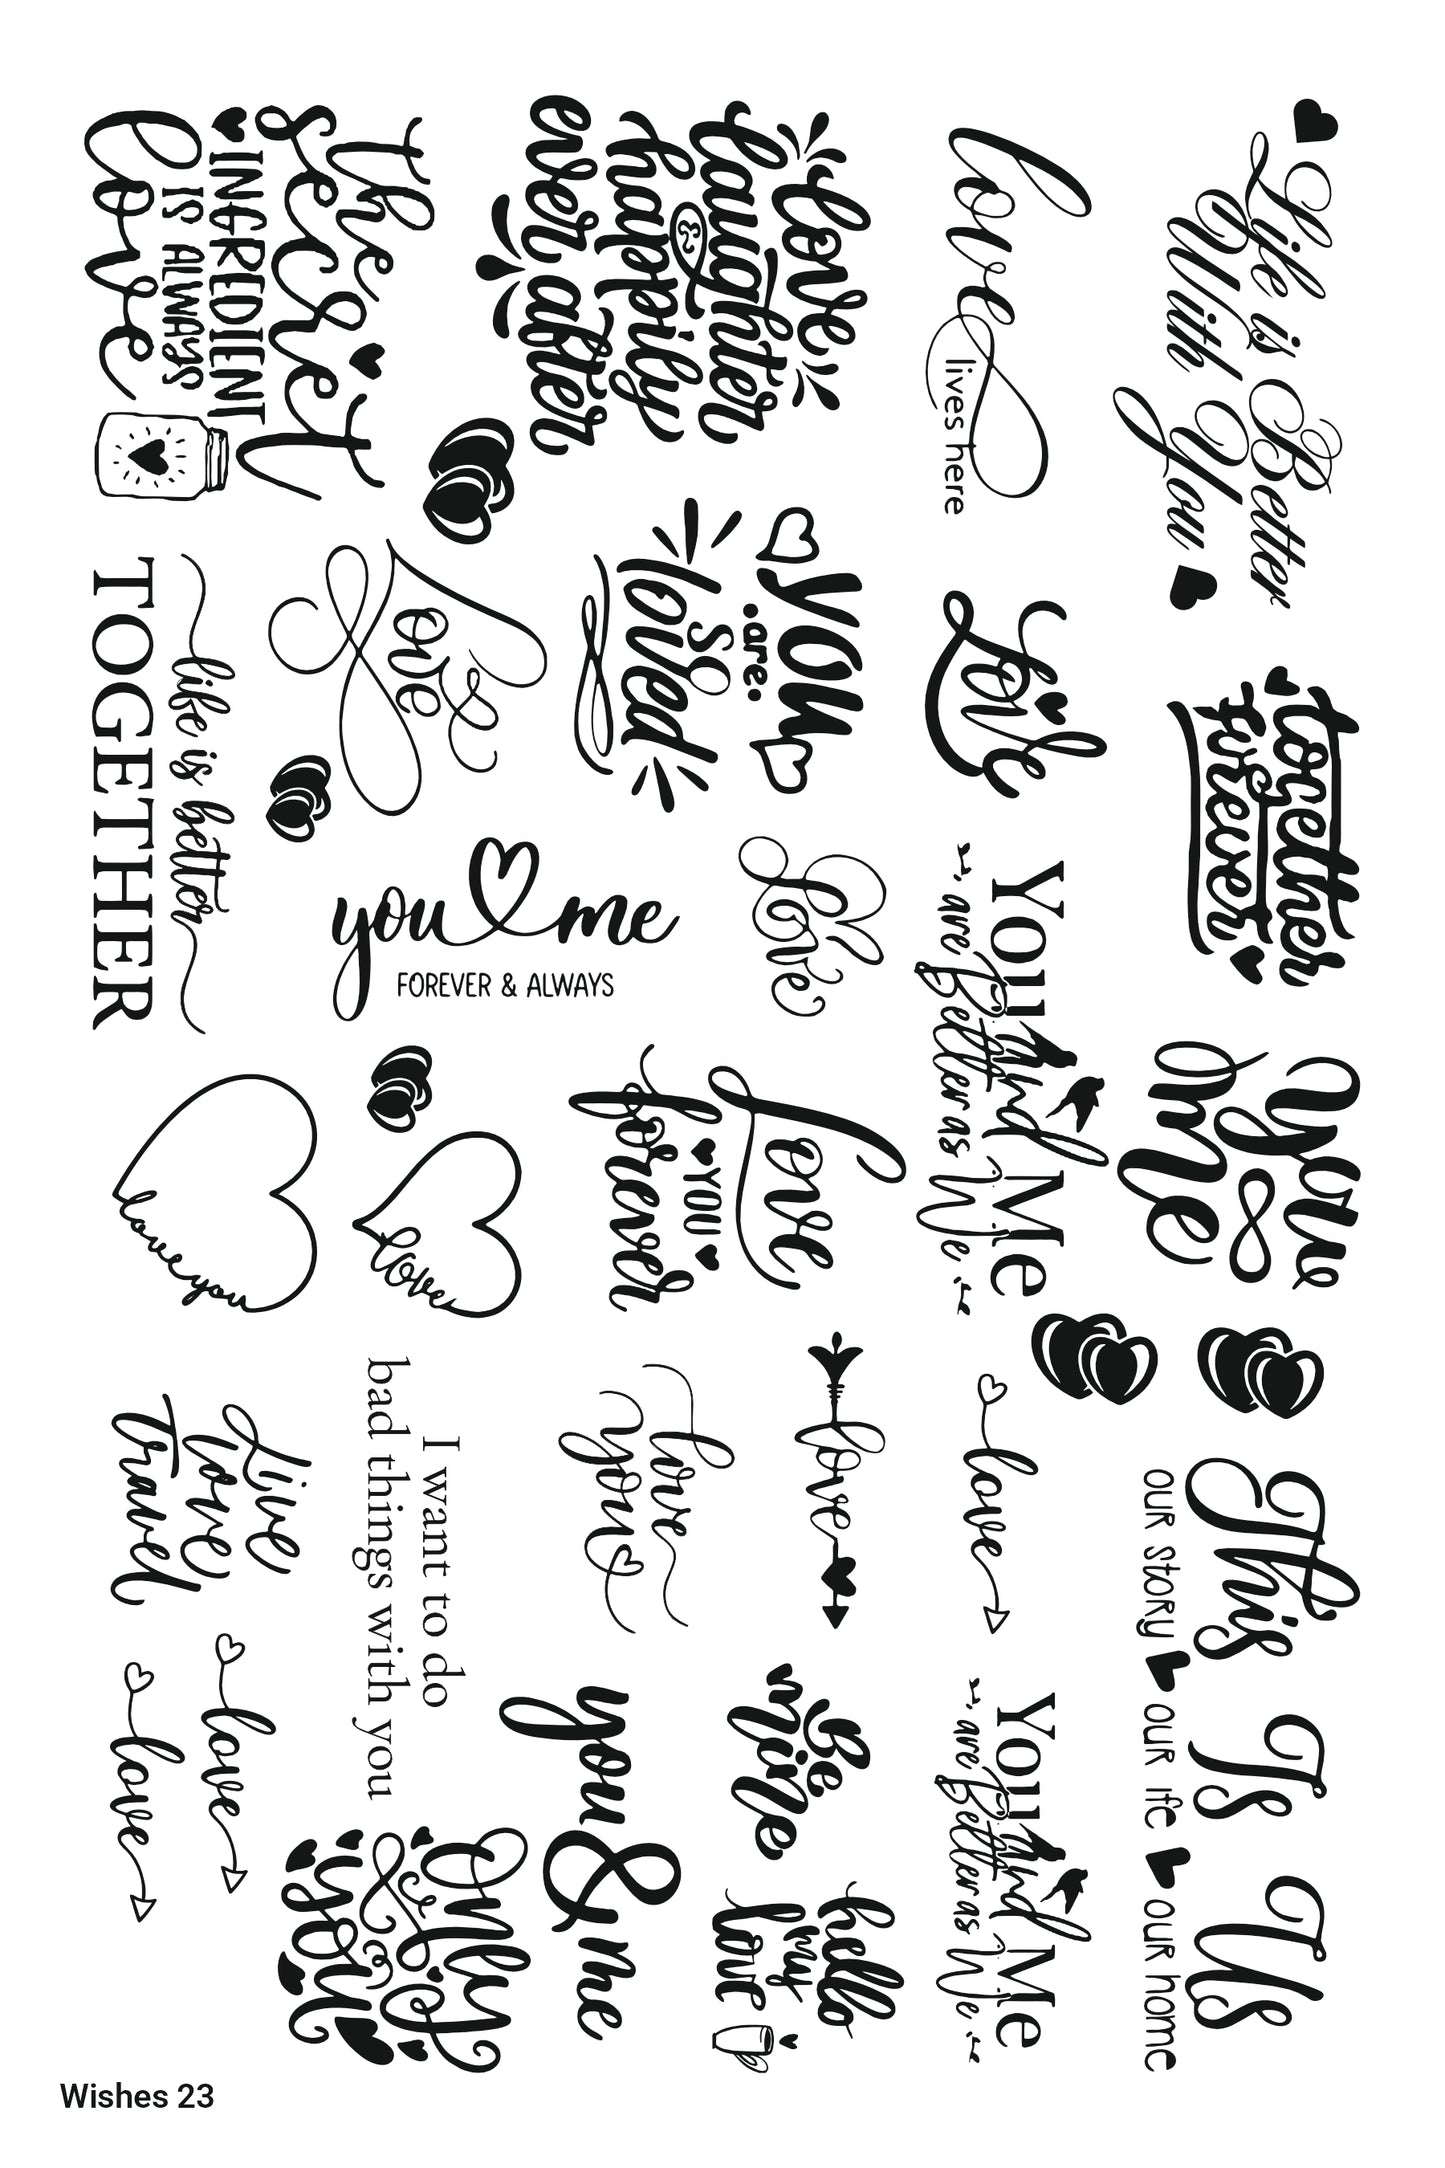 Life is Better
With You
together
forever
You
me
This Is Us
our story our life our home
love
lives here
Love
You and Me
are Better as We
love
You and Me
are Better as We
love
laughter
&
happily
ever after
you
.are.
so
loved
Love
Love
YOU
forever
love
Be
mine
hello
my
love
love
you
you & me
you me
FOREVER & ALWAYS
Love
love
I want to do
bad things with you
Only
you
the
secret
INGREDIENT
IS ALWAYS
love
life is better
TOGETHER
love you
Live
love
travel
love
love
Wishes 23